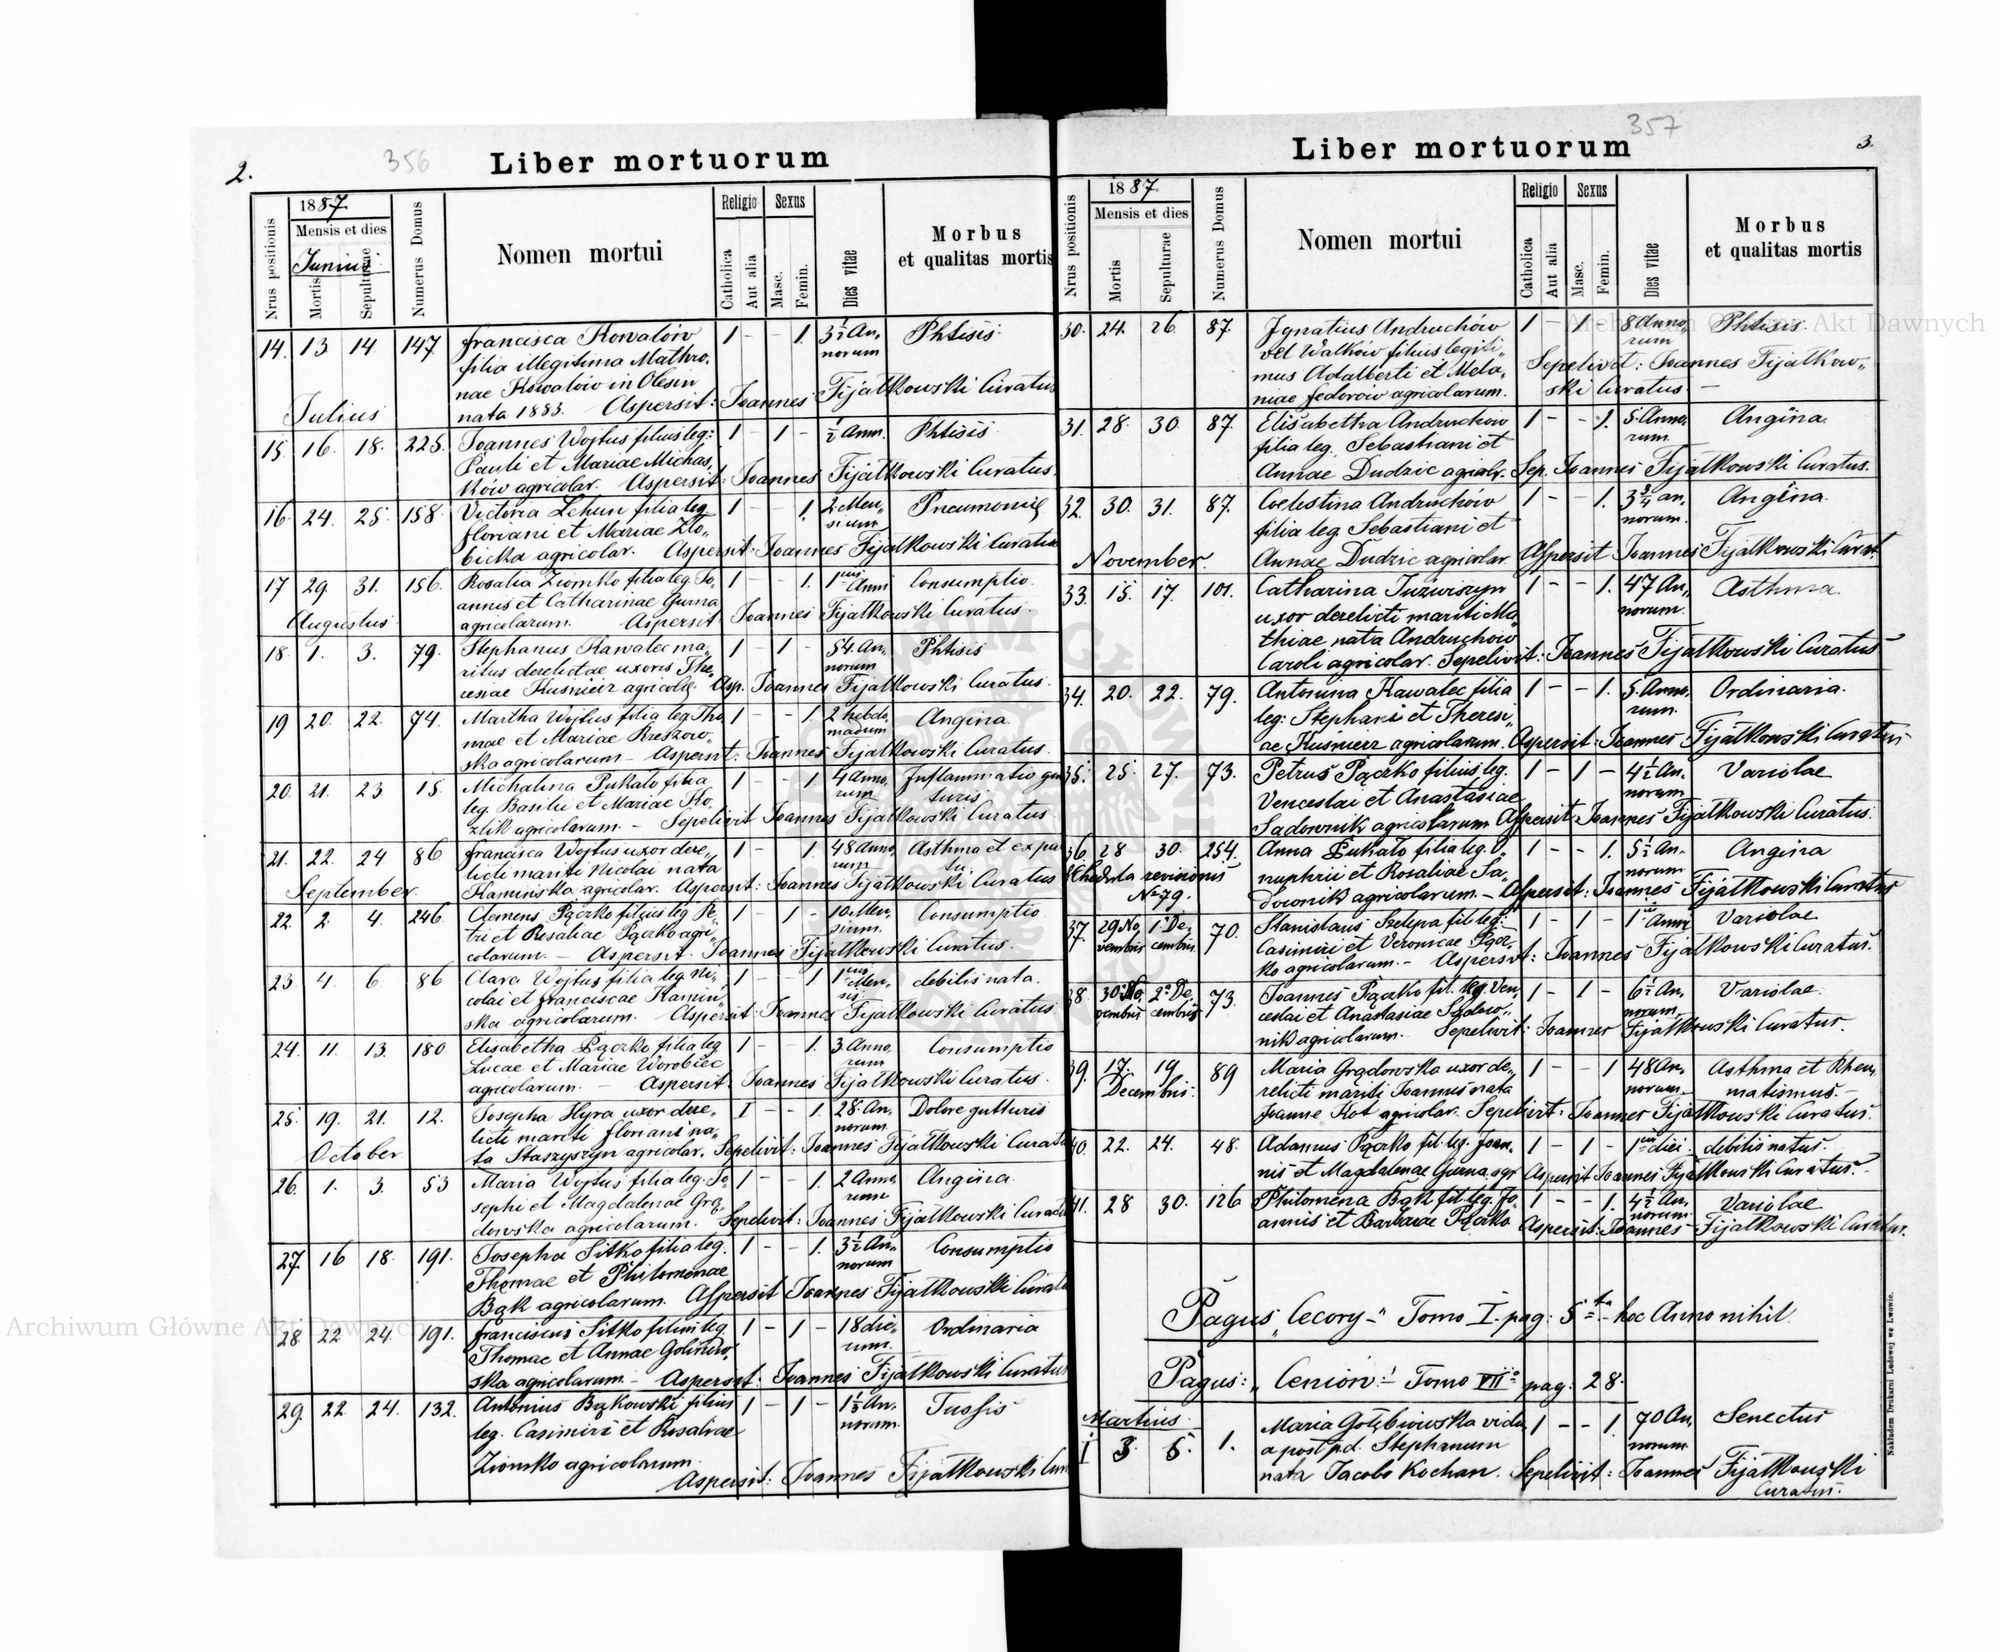 2.
356
Liber mortuorum
Nrus positionis
1887.
Mensis et dies
Junius
Mortis
Sepulturae
Numerus Domus
Nomen mortui
Religio
Catholica
Aut alia
Sexus
Masc.
Femin.
Dies vitae
Morbus
et qualitas mortis
14. 13 14. 147 Francisca Kowalów 1 - - 1. 3½ An„ Phtisis
filia illegitima Mathro„ norum
nae Kowalów in Olesin
nata 1883. Aspersit: Joannes Fijałkowski Curatus
Julius
15. 16. 18. 225. Joannes Wojtus filius leg: 1 - 1 - ½ Anni. Phtisis
Pauli et Mariae Michas„
ków agricolar. Aspersit: Joannes Fijałkowski Curatus.
16. 24. 25. 158. Victoria Lehun filia leg 1 - - 1. 2 Men„ Pneumonia
Floriani et Mariae Zło„ sium
bicka agricolar. Aspersit: Joannes Fijałkowski Curatus
17 29. 31. 156. Rosalia Ziomko filia leg. Jo„ 1 - - 1. 1 Anni Consumptio.
annis et Catharinae Gurna
agricolarum. Aspersit Joannes Fijałkowski Curatus.
Augustus
18. 1. 3. 79. Stephanus Kawalec ma„ 1 - 1 - 54. An„ Phtisis
ritus derelictae uxoris The„ norum
resiae Kuśnierz agricola. Asp. Joannes Fijałkowski Curatus.
19 20. 22. 74. Martha Wojtus filia leg. Tho 1 - - 1. 2 hebdo„ Angina
mae et Mariae Kreszow„ madum
ska agricolarum - Aspersit: Joannes Fijałkowski Curatus.
20. 21. 23 15. Michalina Pukało filia 1 - - 1. 4 Anno„ Inflammatio gut
leg. Basilii et Mariae Ko„ rum turis
zlik agricolarum. - Sepelivit Joannes Fijałkowski Curatus
21. 22. 24 86 Francisca Wojtus uxor dere„ 1 - - 1. 48 Anno„ Asthma et ex par
licti mariti Nicolai nata rum tu
Kamińska agricolar. Aspersit: Joannes Fijałkowski Curatus
September.
22. 2. 4. 246. Clemens Pączko filius leg Pe„ 1 - 1 - 10 Men„ Consumptio
tri et Rosaliae Pączko agri„ sium.
colarum. - Aspersit. Joannes Fijałkowski Curatus.
23. 4. 6. 86 Clara Wojtus filia leg. Ni„ 1 - - 1. 1 Men„ debilis nata.
colai et Franciscae Kamin„ sis
ska agricolarum. Aspersit: Joannes Fijałkowski Curatus
24. 11. 13. 180 Elisabetha Pączko filia leg 1 - - 1. 3. Anno„ Consumptio
Lucae et Mariae Worobiec rum
agricolarum. - Aspersit. Joannes Fijałkowski Curatus.
25. 19. 21. 12. Josepha Hyra uxor dere„ 1 - - 1. 28. An„ Dolore gutturis
licti mariti Floriani na„ norum
ta Staszyszyn agricolar. Sepelivit: Joannes Fijałkowski Curatus
October
26. 1. 3. 53 Maria Wojtus filia leg. Jo„ 1 - - 1. 2 Anno„ Angina.
sephi et Magdalenae Grą„ rum
dowska agricolarum. Sepelivit: Joannes Fijałkowski Curatus
27. 16 18. 191. Josepha Sitko filia leg. 1 - - 1. 3½ An„ Consumptio
Thomae et Philomenae norum
Bąk agricolarum. Aspersit Joannes Fijałkowski Curatus
28 22 24. 191. Franciscus Sitko filius leg. 1 - 1 - 18 die„ Ordinaria
Thomae et Annae Golinow„ rum.
ska agricolarum. - Aspersit: Joannes Fijałkowski Curatus
29. 22. 24. 132. Antonius Bąkowski filius 1 - 1 - 1½ An„ Tussis
leg. Casimiri et Rosaliae norum.
Ziomko agricolarum.
Aspersit: Joannes Fijałkowski Cura
357
Liber mortuorum
3.
Nrus positionis
1887.
Mensis et dies
Mortis
Sepulturae
Numerus Domus
Nomen mortui
Religio
Catholica
Aut alia
Sexus
Masc.
Femin.
Dies vitae
Morbus
et qualitas mortis
30. 24. 26. 87. Ignatius Andruchów 1 - 1 - 8 Anno„ Phtisis.
vel Walków filius legiti„ rum
mus Adalberti et Mela„ Sepelivit: Joannes Fijałkow„
niae Fedorów agricolarum. ski Curatus. -
31. 28. 30. 87. Elisabetha Andruchów 1 - - 1. 5. Anno„ Angina.
filia leg. Sebastiani et rum.
Annae Dudzic agricolr. Sep. Joannes Fijałkowski Curatus.
32. 30. 31. 87. Coelestina Andruchów 1 - - 1. 3¾ an„ Angina.
filia leg Sebastiani et norum.
Annae Dudzic agricolar. Aspersit Joannes Fijałkowski Curat.
November.
33. 15. 17. 101. Catharina Juzwiszyn 1 - - 1. 47 An„ Asthma.
uxor derelicti mariti Ma„ norum.
thiae nata Andruchów
Caroli agricolar. Sepelivit: Joannes Fijałkowski Curatus
34. 20. 22. 79. Antonina Kawalec filia 1 - - 1. 5. Anno„ Ordinaria.
leg: Stephani et Theresi„ rum.
ae Kuśnierz agricolarum. Aspersit: Joannes Fijałkowski Curatus
35. 25. 27. 73. Petrus Pączko filius leg. 1 - 1 - 4½ An. Variolae
Venceslai et Anastasiae norum
Sadownik agricolarum Aspersit: Joannes Fijałkowski Curatus.
36. 28 30. 254. Anna Pukało filia leg. O„ 1 - - 1. 5½ An. Angina
nuphrii et Rosaliae Sa„ norum
downik agricolarum. - Aspersit: Joannes Fijałkowski Curatus
Chedula revisionis
No 79.
37. 29 No„ 1 De„ 70. Stanislaus Szelepa fil. leg: 1 - 1 - 1 Anni Variolae
vembris cembris Casimiri et Veronicae Pącz„
ko agricolarum. - Aspersit: Joannes Fijałkowski Curatus.
38. 30 No 2 De 73. Joannes Pączko fil. leg. Ven„ 1 - 1 - 6½ An„ Variolae.
vembris cembris ceslai et Anastasiae Sadow„ norum.
nik agricolarum. Sepelivit: Joannes Fijałkowski Curatus.
39. 17. 19 89 Maria Grądowska uxor de„ 1 - - 1 48 An„ Asthma et Rheu„
Decembris. relicti mariti Joannis nata norum. matismus. -
Joanne Kot agricolar. Sepelivit: Joannes Fijałkowski Curatus.
40. 22. 24. 48. Adamus Pączko fil. leg. Joan„ 1 - 1 - 1 diei. debilis natus.
nis et Magdalenae Gurna. agr Aspersit Joannes Fijałkowski Curatus. -
41. 28 30. 126 Philomena Bąk fil. leg. Jo„ 1 - - 1. 4½ An„ Variolae
annis et Barbarae Pączko norum
Aspersit: Joannes Fijałkowski Curatus.
Pagus „Cecory -" Tomo I. pag: 5 ta hoc Anno nihil.
Pagus: „Ceniów" - Tomo VII pag: 28.
Martius.
1 3. 5. 1. Maria Gołębiowska vidu„ 1 - - 1. 70 An„ Senectus
a post p.d. Stephanum norum.
nata Jacobo Kochan. Sepelivit: Joannes Fijałkowski
Curatus.
Nakładem Drukarni Ludowej we Lwowie.
Archiwum Główne Akt Dawnych
Archiwum Główne Akt Dawnych